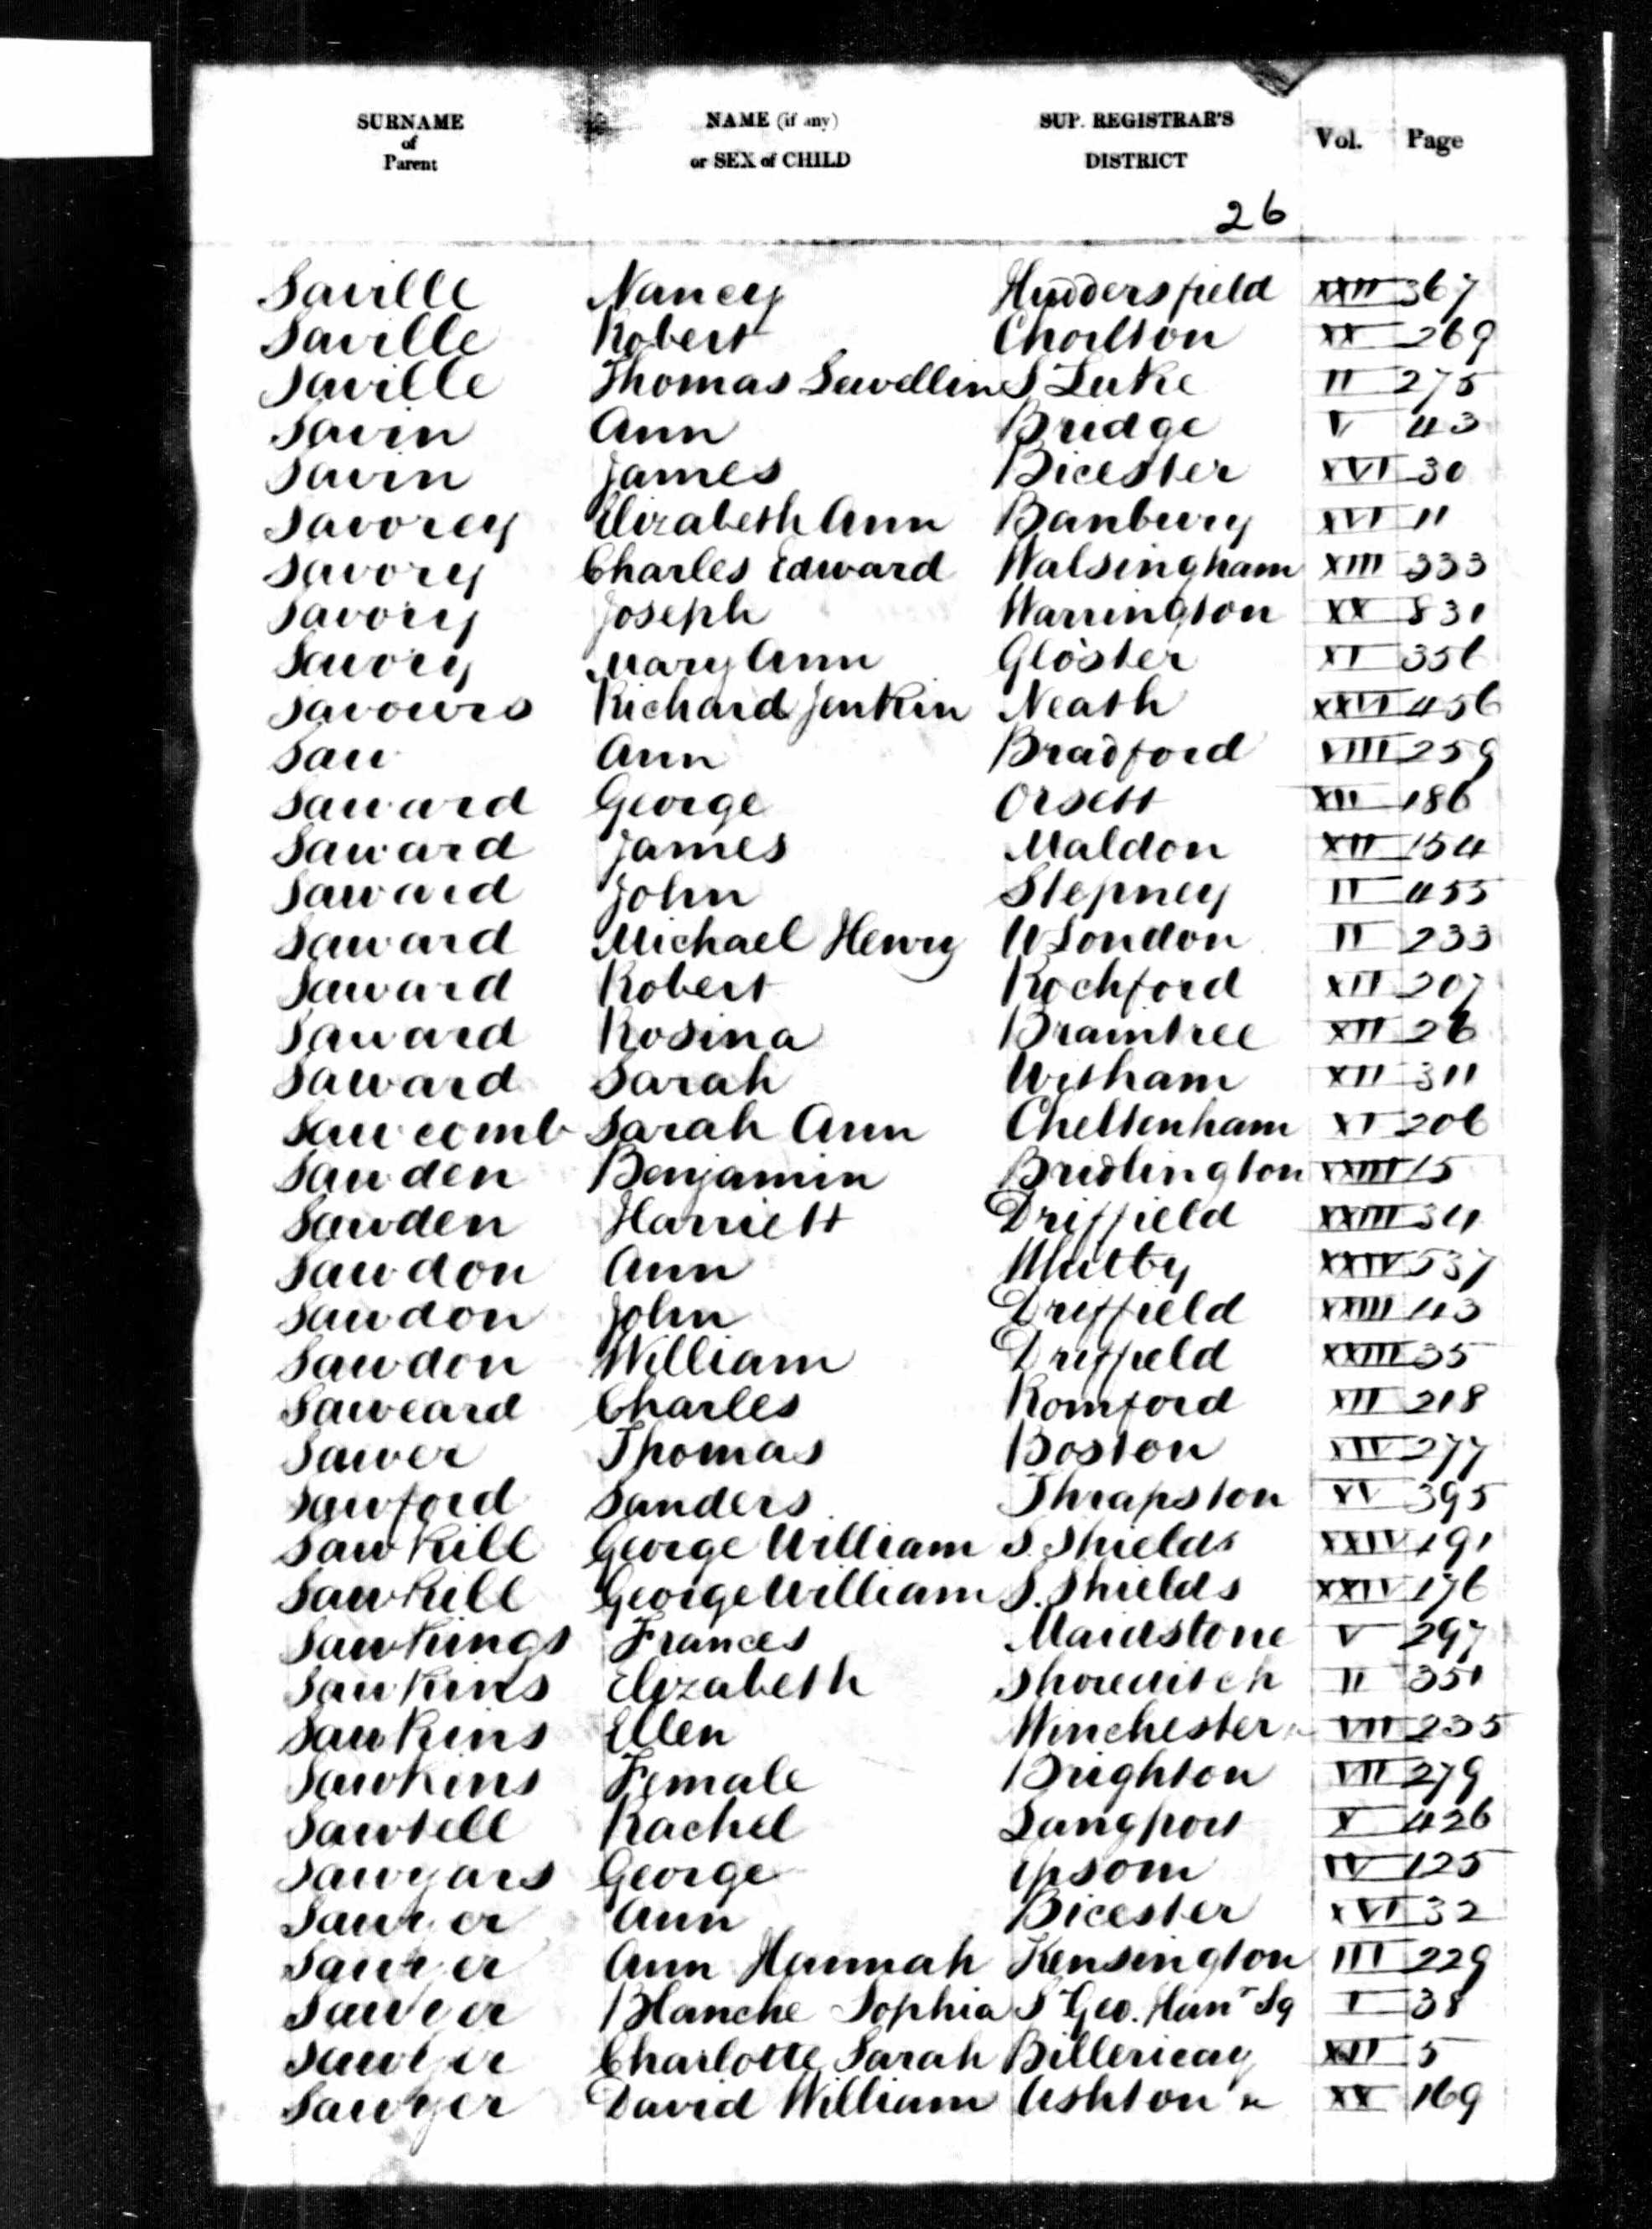 SURNAME of Parent NAME (if any) or SEX of CHILD SUP. REGISTRAR'S DISTRICT Vol. Page
26
Saville Nancy Huddersfield XXII 367
Saville Robert Chorlton XX 269
Saville Thomas Lewellin S Luke II 275
Savin Ann Bridge V 43
Savin James Bicester XVI 30
Savorey Elizabeth Ann Banbury XVI 11
Savory Charles Edward Walsingham XIII 333
Savory Joseph Warrington XX 831
Savory Mary Ann Gloster XI 356
Savours Richard Jenkin Neath XXVI 456
Saw Ann Bradford VIII 259
Saward George Orsett XII 186
Saward James Maldon XII 154
Saward John Stepney II 455
Saward Michael Henry W London II 233
Saward Robert Rochford XII 207
Saward Rosina Braintree XII 26
Saward Sarah Witham XII 311
Sawcomb Sarah Ann Cheltenham XI 206
Sawden Benjamin Bridlington XXIII 15
Sawden Harriett Driffield XXIII 34
Sawdon Ann Whitby XXIV 537
Sawdon John Driffield XXIII 43
Sawdon William Driffield XXIII 35
Saweard Charles Romford XII 218
Sawer Thomas Boston XIV 277
Sawford Sanders Thrapston XV 395
Sawkill George William S. Shields XXIV 191
Sawkill George William S. Shields XXIV 176
Sawkings Frances Maidstone V 297
Sawkins Elizabeth Shoreditch II 351
Sawkins Ellen Winchester VII 235
Sawkins Female Brighton VII 279
Sawtell Rachel Langport X 426
Sawyars George Epsom IV 125
Sawyer Ann Bicester XVI 32
Sawyer Ann Hannah Kensington III 229
Sawyer Blanche Sophia S Geo. Han^r Sq I 38
Sawyer Charlotte Sarah Billericay XII 5
Sawyer David William Ashton &c XX 169